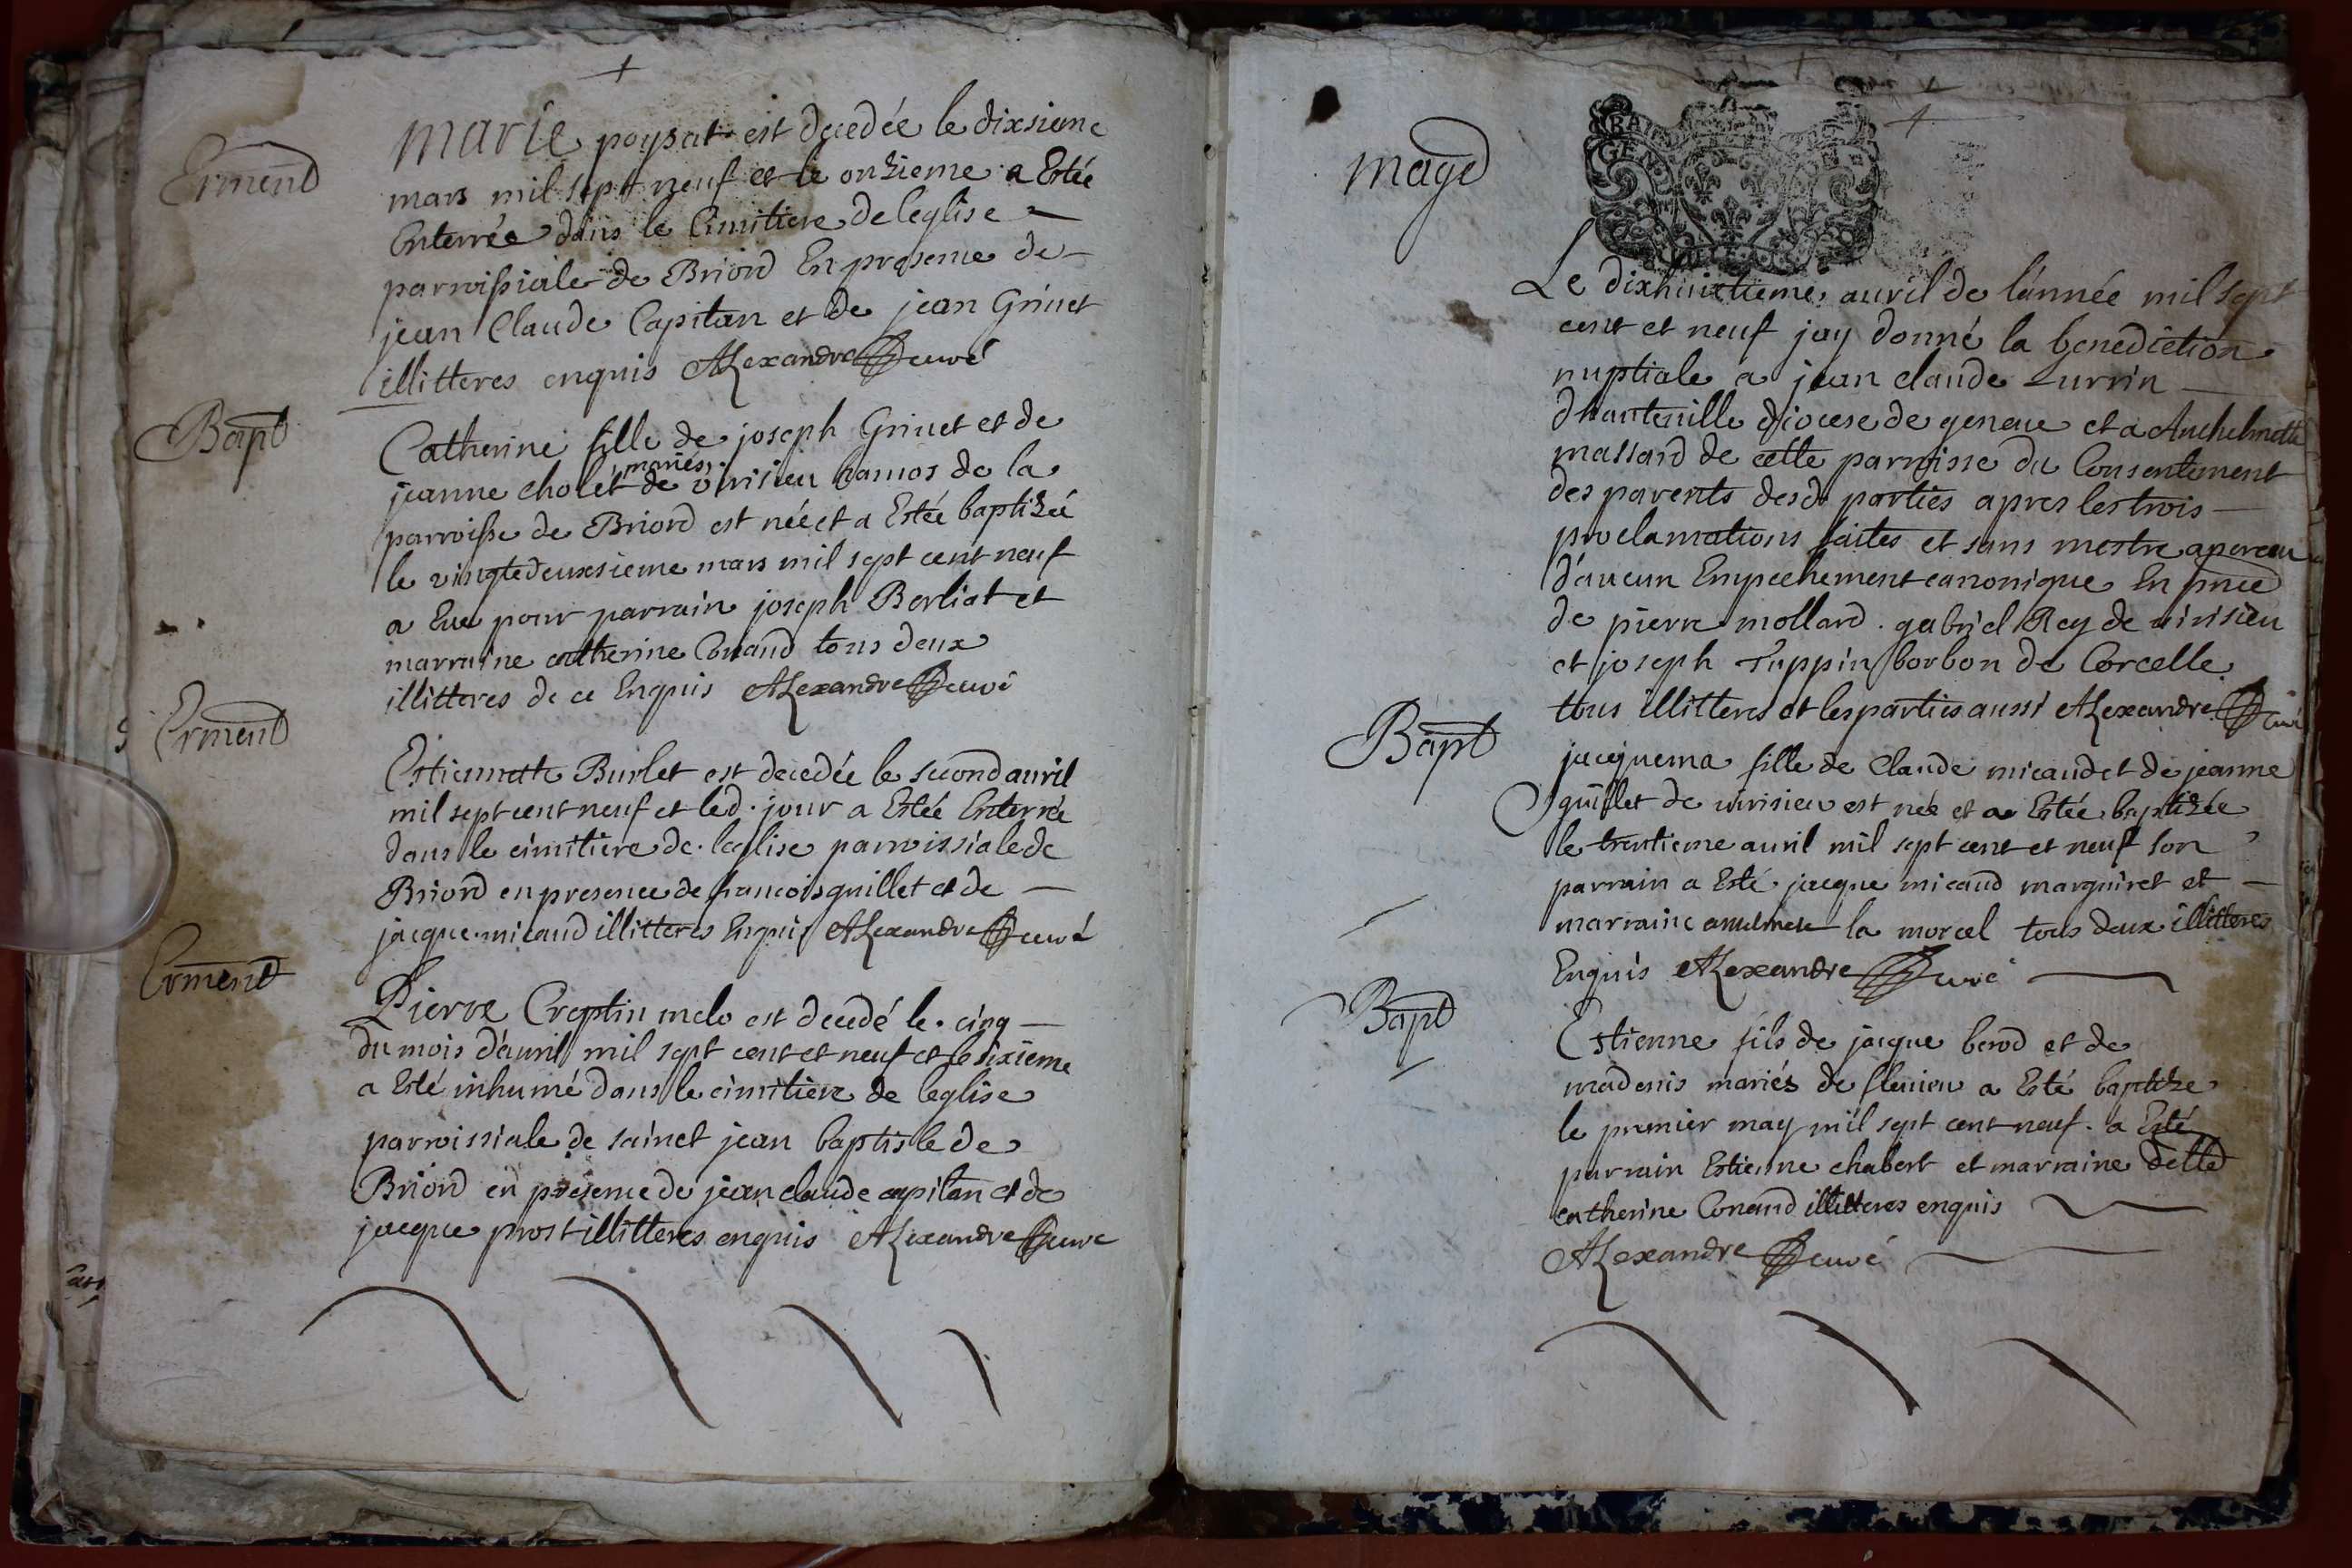 Erment
marie poysat est decedée le dixsieme
mars mil sept neuf et le onzieme a Estée
Enterrée dans le Cimitiere de leglise
parroissiale de Briord En presence de
jean Claude Capitan et de jean Grinet
illitteres enquis Alexandre curé
Bapt
Catherine fille de joseph Grinet et de
mariés
jeanne cholet de virisieu hamos de la
parroisse de Briord est née et a Estée baptizée
le vingtedeuxsieme mars mil sept cent neuf
a Eue pour parrain joseph Berliat et
marraine catherine Conand tous deux
illitteres de ce Enquis Alexandre curé
Erment
Estiennette Burlet est decedée le second auril
mil sept cent neuf et led. jour a Estée Enterrée
dans le cimitiere de leglise parroissiale de
Briord en presence de francois guillet et de
jacque micaud illitteres Enquis Alexandre curé
Erment
Pierre Creptin melo est decedé le cinq
du mois d'auril mil sept cent et neuf et le sixieme
a Esté inhumé dans le cimitiere de leglise
parroissiale de sainct jean baptiste de
Briord en presence de jean claude capitan et de
jacque prost illitteres enquis Alexandre curé
mage
GEN
Le dixhuictieme auril de l'année mil sept
cent et neuf jay donné la benediction
nuptiale a jean claude Lurrin
dhauteuille diocese de geneue et a Anthelmette
massard de cette parroisse du Consentement
des parents desd. parties apres les trois
proclamations faites et sans mestre aperceu
d'aucun Empechement canonique En pnce
de pierre mollard. gabriel Rey de uirisieu
et joseph Tuppin borbon de Corcelle
tous illitteres et les parties aussi Alexandre curé
Bapt
jacquema fille de Claude micaud et de jeanne
guillet de uirisieu est née et a Estée baptizée
le trentieme auril mil sept cent et neuf son
parrain a Esté jacque micaud marguiret et
marraine la morcel tous deux illitteres
Enquis Alexandre curé
Bapt
Estienne fils de jacque berod et de
madenis mariés de fleuieu a Esté baptize
le premier may mil sept cent neuf. a Esté
parrain Estienne chabert et marraine delle
catherine Conand illitteres enquis
Alexandre curé